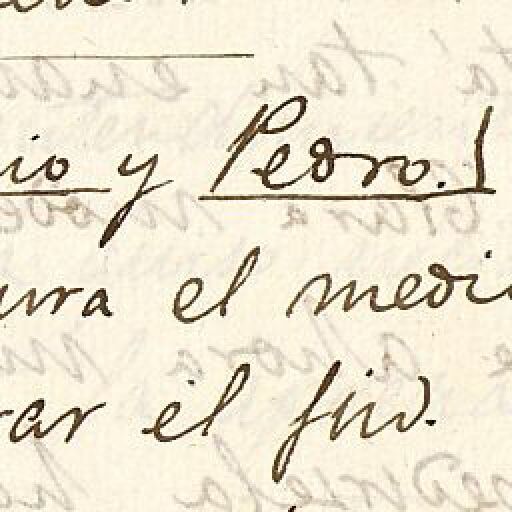 io y Pedro.)
ura el medi
ar él fin.